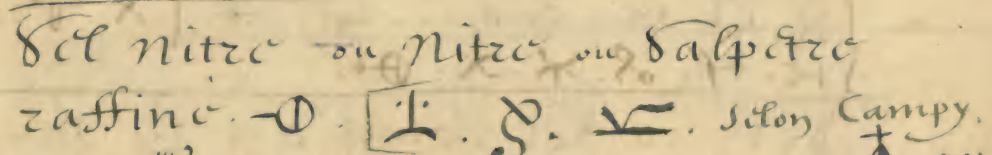 Sel nitre ou Nitre ou Salpetre
raffiné. selon Campy.